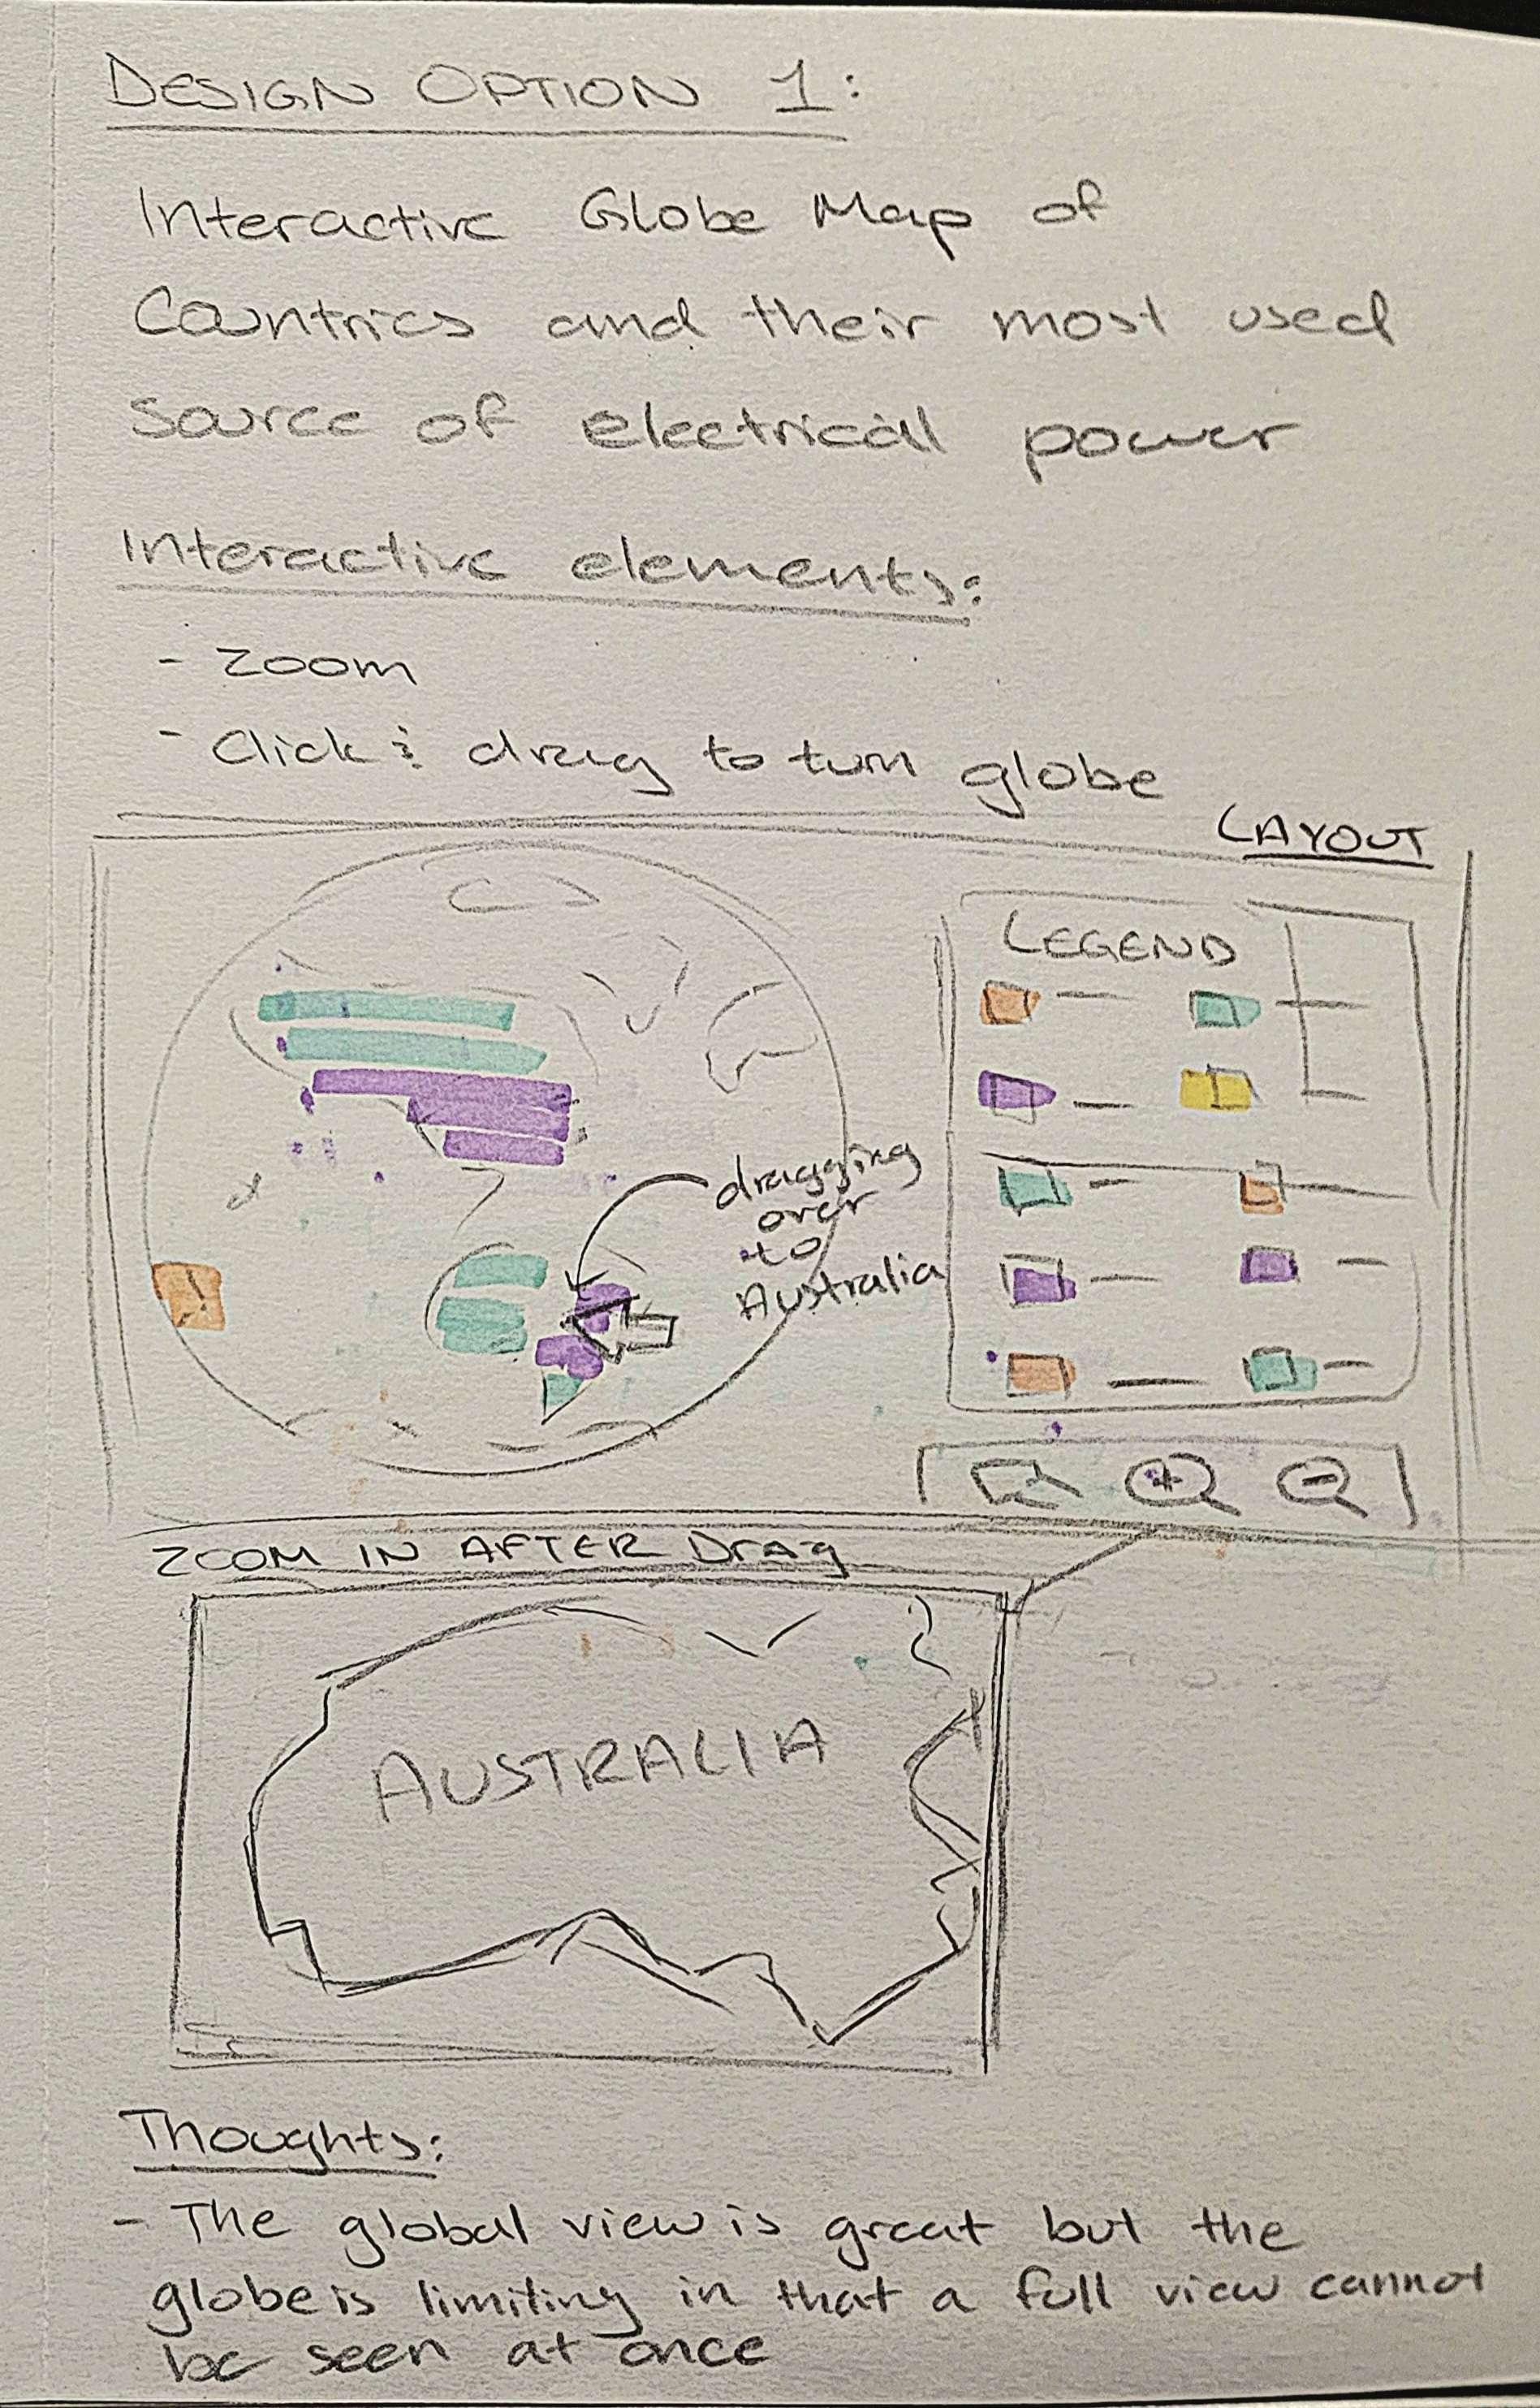 DESIGN OPTION 1:
Interactive Globe Map of
Countries and their most used
source of electrical power
Interactive elements:
- Zoom
- Click & drag to turn globe
LAYOUT
LEGEND
dragging
over
to
Australia
ZOOM IN AFTER Drag
AUSTRALIA
Thoughts:
- The global view is great but the
globe is limiting in that a full view cannot
be seen at once